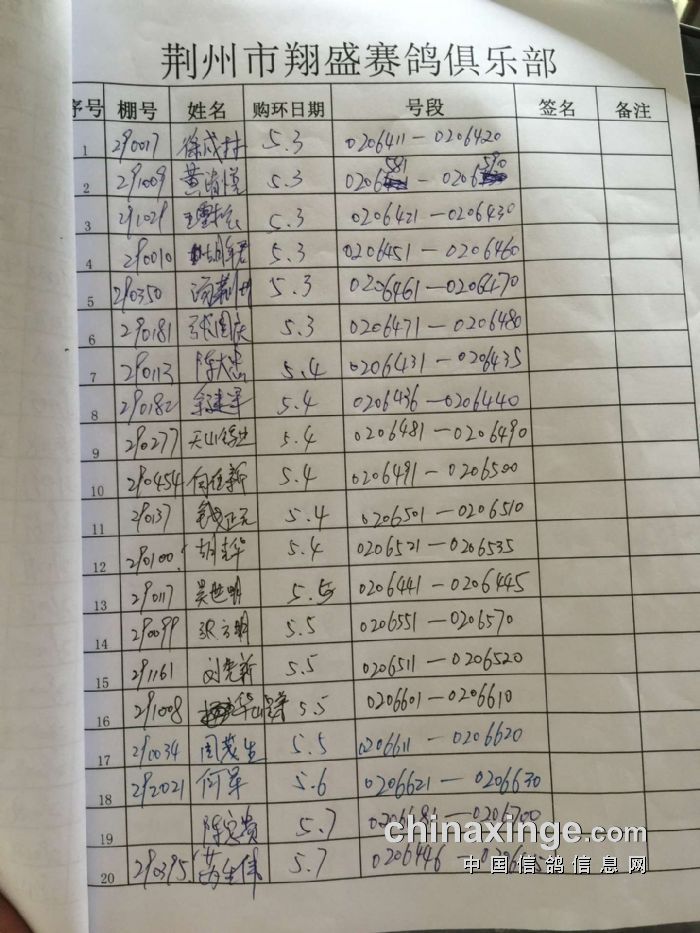 荆州市翔盛赛鸽俱乐部
序号 棚号 姓名 购环日期 号段 签名 备注
1 290017 徐成村 5.3 0206411—0206420
2 291009 黄清悦 5.3 0206581—0206590
3 291029 5.3 0206421—0206430
4 290010 5.3 0206451—0206460
5 290350 5.3 0206461—0206470
6 290181 张国庆 5.3 0206471—0206480
7 290113 陈大忠 5.4 0206431—0206435
8 290182 余建军 5.4 0206436—0206440
9 290277 5.4 0206481—0206490
10 290454 向任新 5.4 0206491—0206500
11 290137 钱正元 5.4 0206501—0206510
12 290100 胡志华 5.4 0206521—0206535
13 290117 吴世明 5.5 0206441—0206445
14 290099 张方明 5.5 0206551—0206570
15 291161 刘先新 5.5 0206511—0206520
16 291008 5.5 0206601—0206610
17 290034 周茂生 5.5 0206611—0206620
18 292021 何军 5.6 0206621—0206630
19 陈定贵 5.7 0206700
20 290395 5.7 0206446
chinaxinge.com
中国信鸽信息网